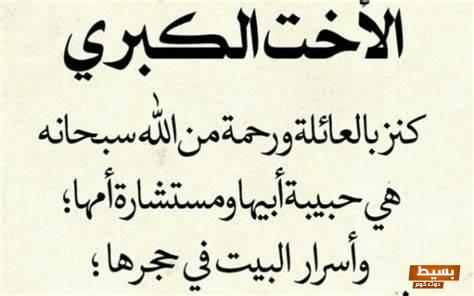 الأخت الكبري
كنز بالعائلة ورحمة من الله سبحانه
هي حبيبة أبيها ومستشارة أمها؛
وأسرار البيت في حجرها؛
بسيط
دوت كوم